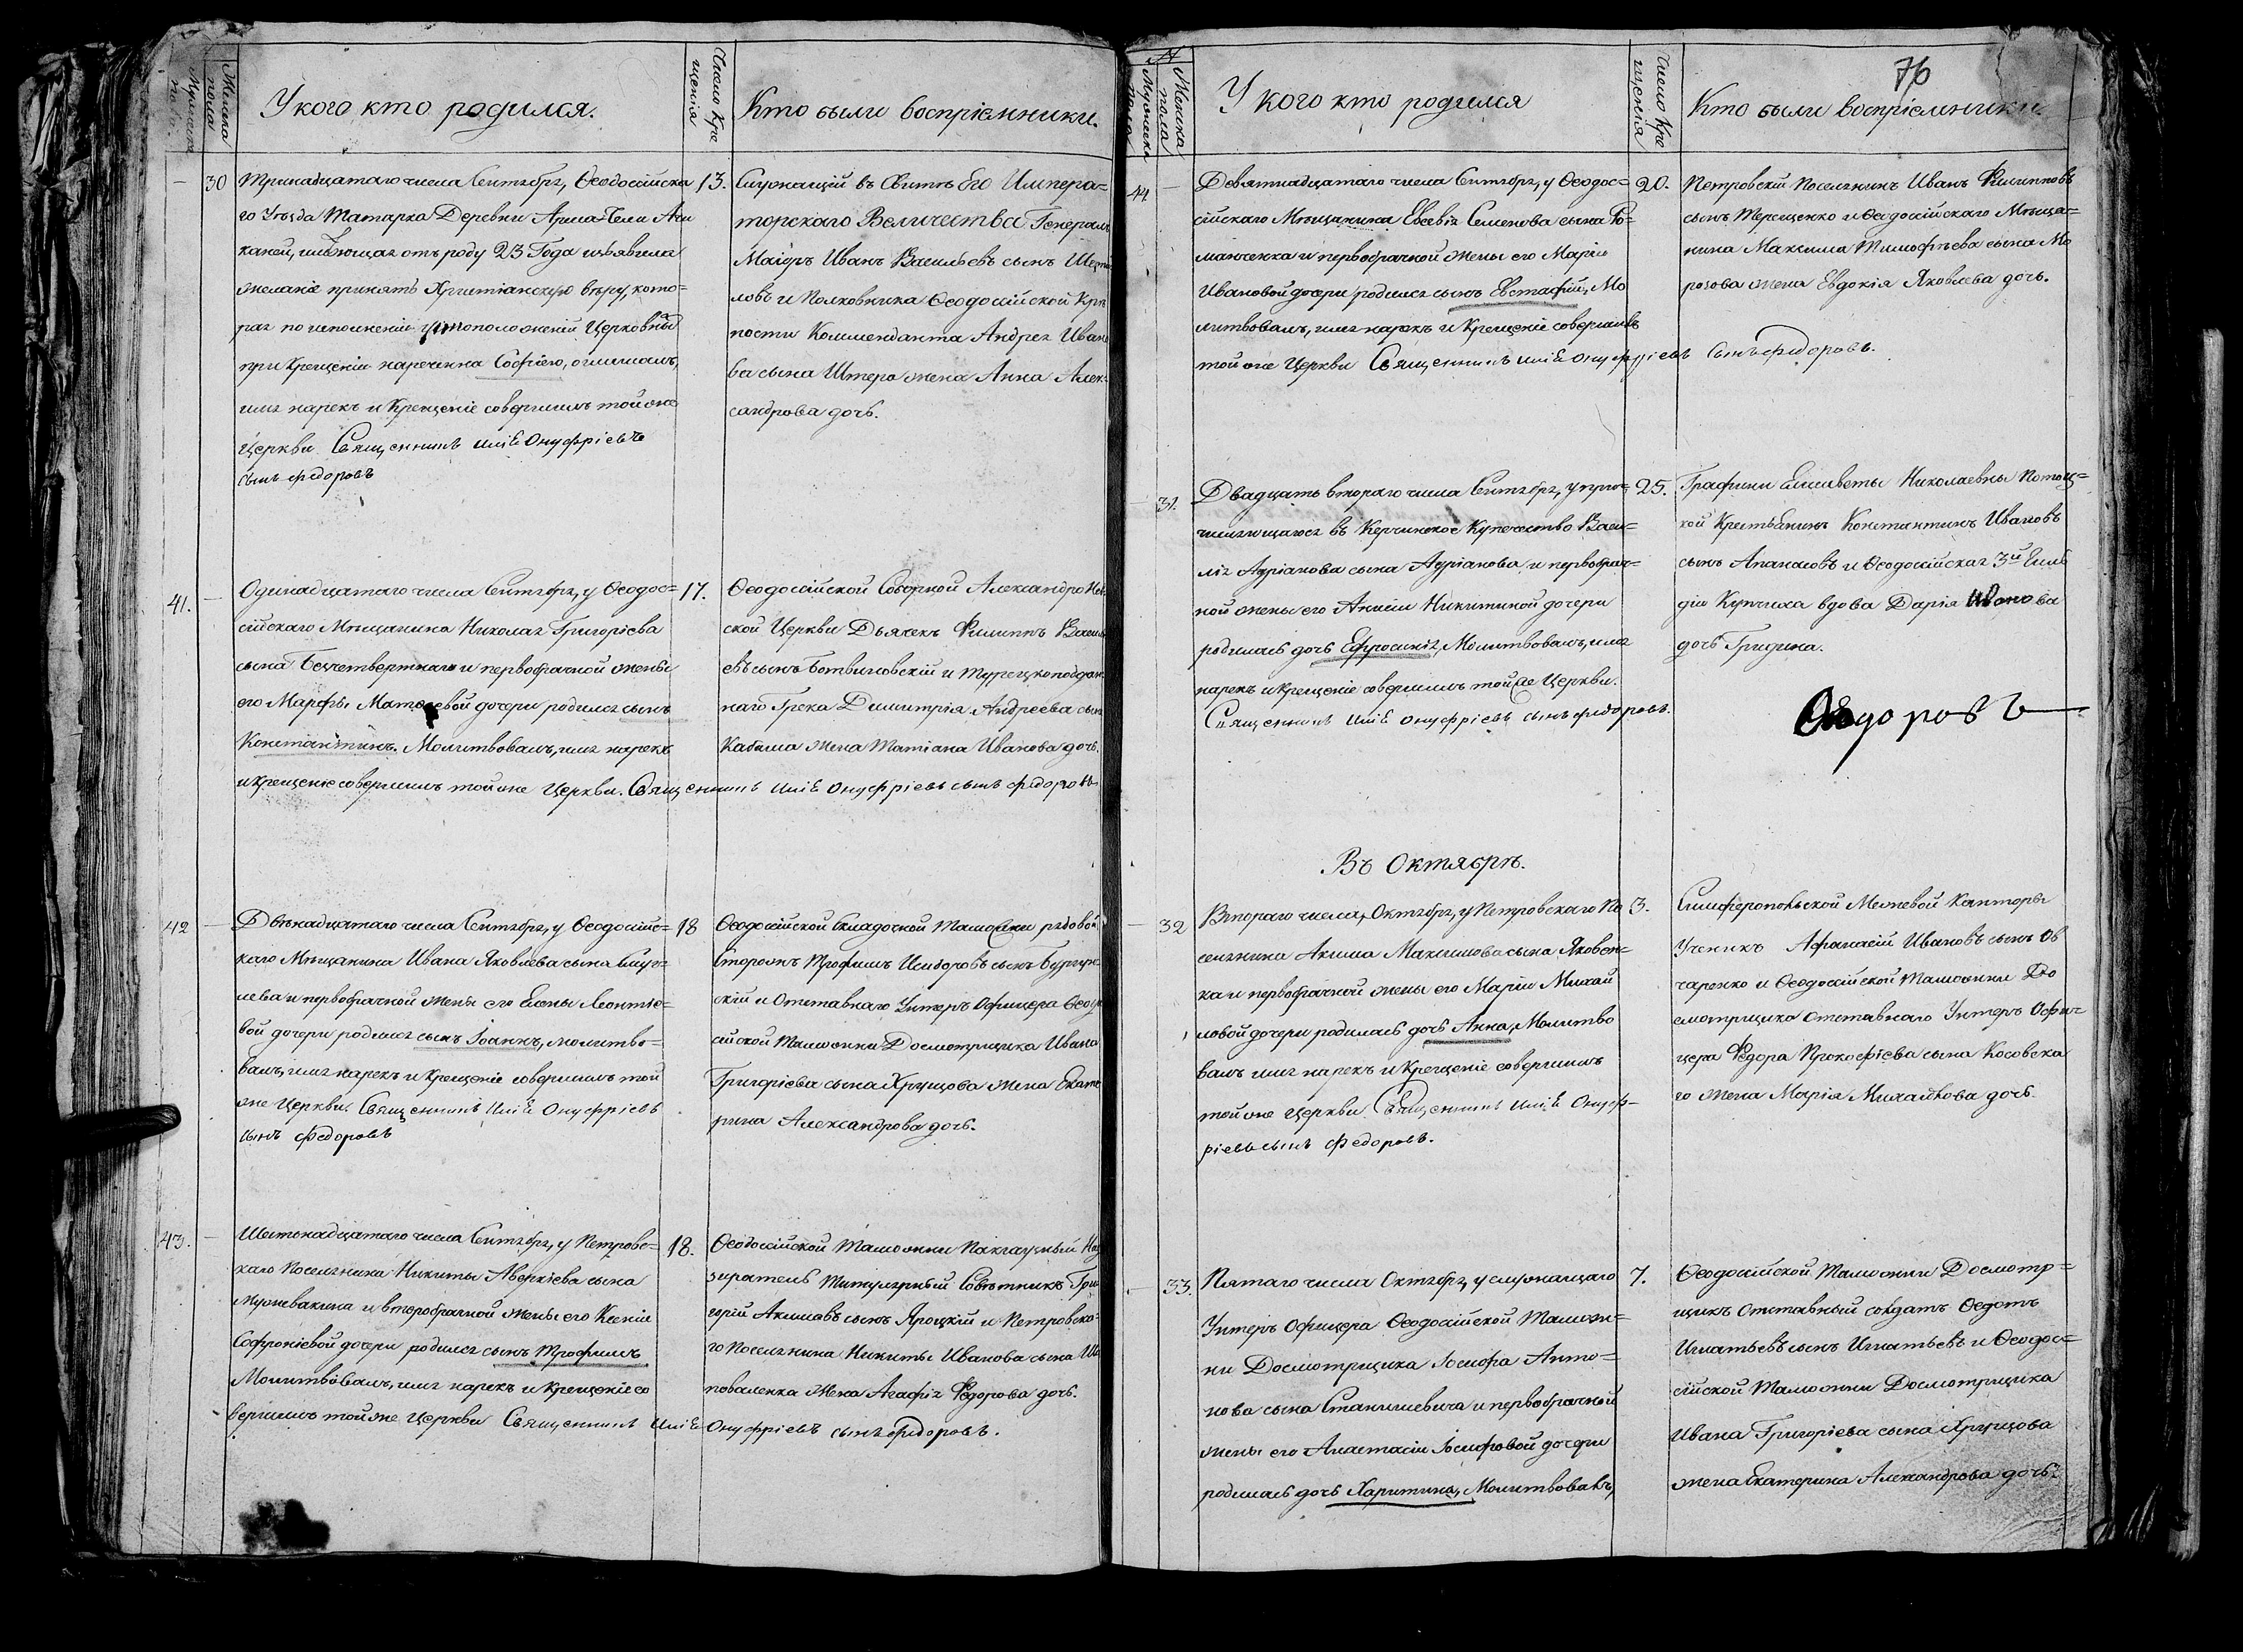 Женска пола
Мужеска
У кого кто родился.
Число Кре
щенія
Кто были воспріемники.
30
Тринадцатаго числа Сентября, Ѳеодосійска
го Уѣзда Татарка Деревни
имѣющая отъ роду 23 Года изъявила
желаніе принять Христіанскую вѣру, кото=
рая по исполненіи Церковных
при Крещеніи наречена Софіею,
имя нарекъ и Крещеніе совершилъ той же
Церкви Священникъ Илія Онуфріевъ
сынъ Федоровъ
13.
Служащій въ Свитѣ Его Импера=
торскаго Величества Генералъ
Маіоръ Иванъ Васильевъ сынъ
ловъ и Полковника Ѳеодосійской Крѣ
пости Комменданта Андрея Ивано
ва сына Штера жена Анна Алек=
сандрова дочь.
41.
Одинадцатаго числа Сентября, у Ѳеодос=
сійскаго Мѣщанина Николая Григоріева
сына Безчетвертнаго и первобрачной жены
его Марфы Матвѣевой дочери родился сынъ
Константинъ. Молитвовалъ, имя нарекъ
и Крещеніе совершилъ той же Церкви. Священникъ Илія Онуфріевъ сынъ Федоровъ
17.
Ѳеодосійской Соборной Александро Нев
ской Церкви Дьячекъ Филиппъ Васил
евъ сынъ Ботвиновскій и Турецкоподдан
наго Грека Димитрія Андреева сына
Кабаша жена Татіана Иванова дочь.
42
Двѣнадцатаго числа Сентября, у Ѳеодосійс=
каго Мѣщанина Ивана Яковлева сына
лева и первобрачной жены его Елены Леонтіе=
вой дочери родился сынъ Іоаннъ, молитво=
валъ, имя нарекъ и Крещеніе совершилъ той
же Церкви. Священникъ Илія Онуфріевъ
сынъ Федоровъ
18
Ѳеодосійской Складочной Таможни рядовой
сторожъ Трофимъ Исидоровъ сынъ
скій и Отставнаго Унтеръ Офицера Ѳеодо
сійской Таможни Досмотрщика Ивана
Григоріева сына Хрущова жена Екате
рина Александрова дочь.
43.
Шестонадцатаго числа Сентября, у Петровс=
каго Поселянина Никиты Аверкіева сына
и второбрачной жены его Ксеніи
Софроніевой дочери родился сынъ Трофимъ
Молитвовалъ, имя нарекъ и Крещеніе со
вершилъ той же Церкви Священникъ Илія Онуфріевъ сынъ Федоровъ.
18.
Ѳеодосійской Таможни Пакгаузный Над
зиратель Титулярный Совѣтникъ Гри
горій Акимовъ сынъ Яроцкій и Петровска=
го Поселянина Никиты Иванова сына Ша
поваленка жена Агафія Федорова дочь.
76
Женска пола
Мужеска пола
У кого кто родился
Число Кре
щенія
Кто были воспріемники.
44
Девятнадцатаго числа Сентября, у Ѳеодос=
сійскаго Мѣщанина Евсевія Семенова сына Ро=
манченка и первобрачной жены его Маріи
Ивановой дочери родился сынъ Евстафій, Мо
литвовалъ, имя нарекъ и Крещеніе совершилъ
той же Церкви Священникъ Илія Онуфріевъ сынъ Федоровъ.
20.
Петровскій Поселянинъ Иванъ Филипповъ
сынъ Терещенко и Ѳеодосійскаго Мѣща=
нина Максима Тимофѣева сына Мо
розова жена Евдокія Яковлева дочь.
31.
Двадцать втораго числа Сентября, у при=
числяющагося въ Керчинское Купечество Васи=
лія Адріанова сына Адріанова и первобрач=
ной жены его Анисіи Никитиной дочери
родилась дочь Ефросинія, Молитвовалъ, имя
нарекъ и Крещеніе совершилъ той же Церкви.
Священникъ Илія Онуфріевъ сынъ Федоровъ.
25.
Графини Елисаветы Николаевны Потоц=
кой Крестьянинъ Константинъ Ивановъ
сынъ Апанасовъ и Ѳеодосійская 3й Гиль
діи Купчиха вдова Дарія Иванова
дочь Гридина.
Федоровъ
Въ Октябрѣ.
32
Втораго числа, Октября, у Петровскаго По
селянина Акима Максимова сына Яковен=
ка и первобрачной жены его Маріи Михай
ловой дочери родилась дочь Анна, Молитво
валъ имя нарекъ и Крещеніе совершилъ
той же Церкви. Священникъ Илія Онуф=
ріевъ сынъ Федоровъ.
3.
Симферопольской Межевой Канторы
Ученикъ Афанасій Ивановъ сынъ Ов
чаренко и Ѳеодосійской Таможни До
смотрщика отставнаго Унтеръ Офи=
цера Федора Прокофіева сына Косовска
го жена Марія Михайлова дочь.
33.
Пятаго числа Октября, у служащаго
Унтеръ Офицера Ѳеодосійской Таможж=
ни Досмотрщика Іосифа Анто=
нова сына Станишевича и первобрачной
жены его Анастасіи Іосифовой дочери
родилась дочь Харитина, Молитвовалъ,
7.
Ѳеодосійской Таможни Досмотр=
щикъ Отставный солдатъ Ѳедотъ
Игнатьевъ сынъ Игнатьевъ и Ѳеодос=
сійской Таможни Досмотрщика
Ивана Григоріева сына Хрущова
жена Екатерина Александрова дочь.